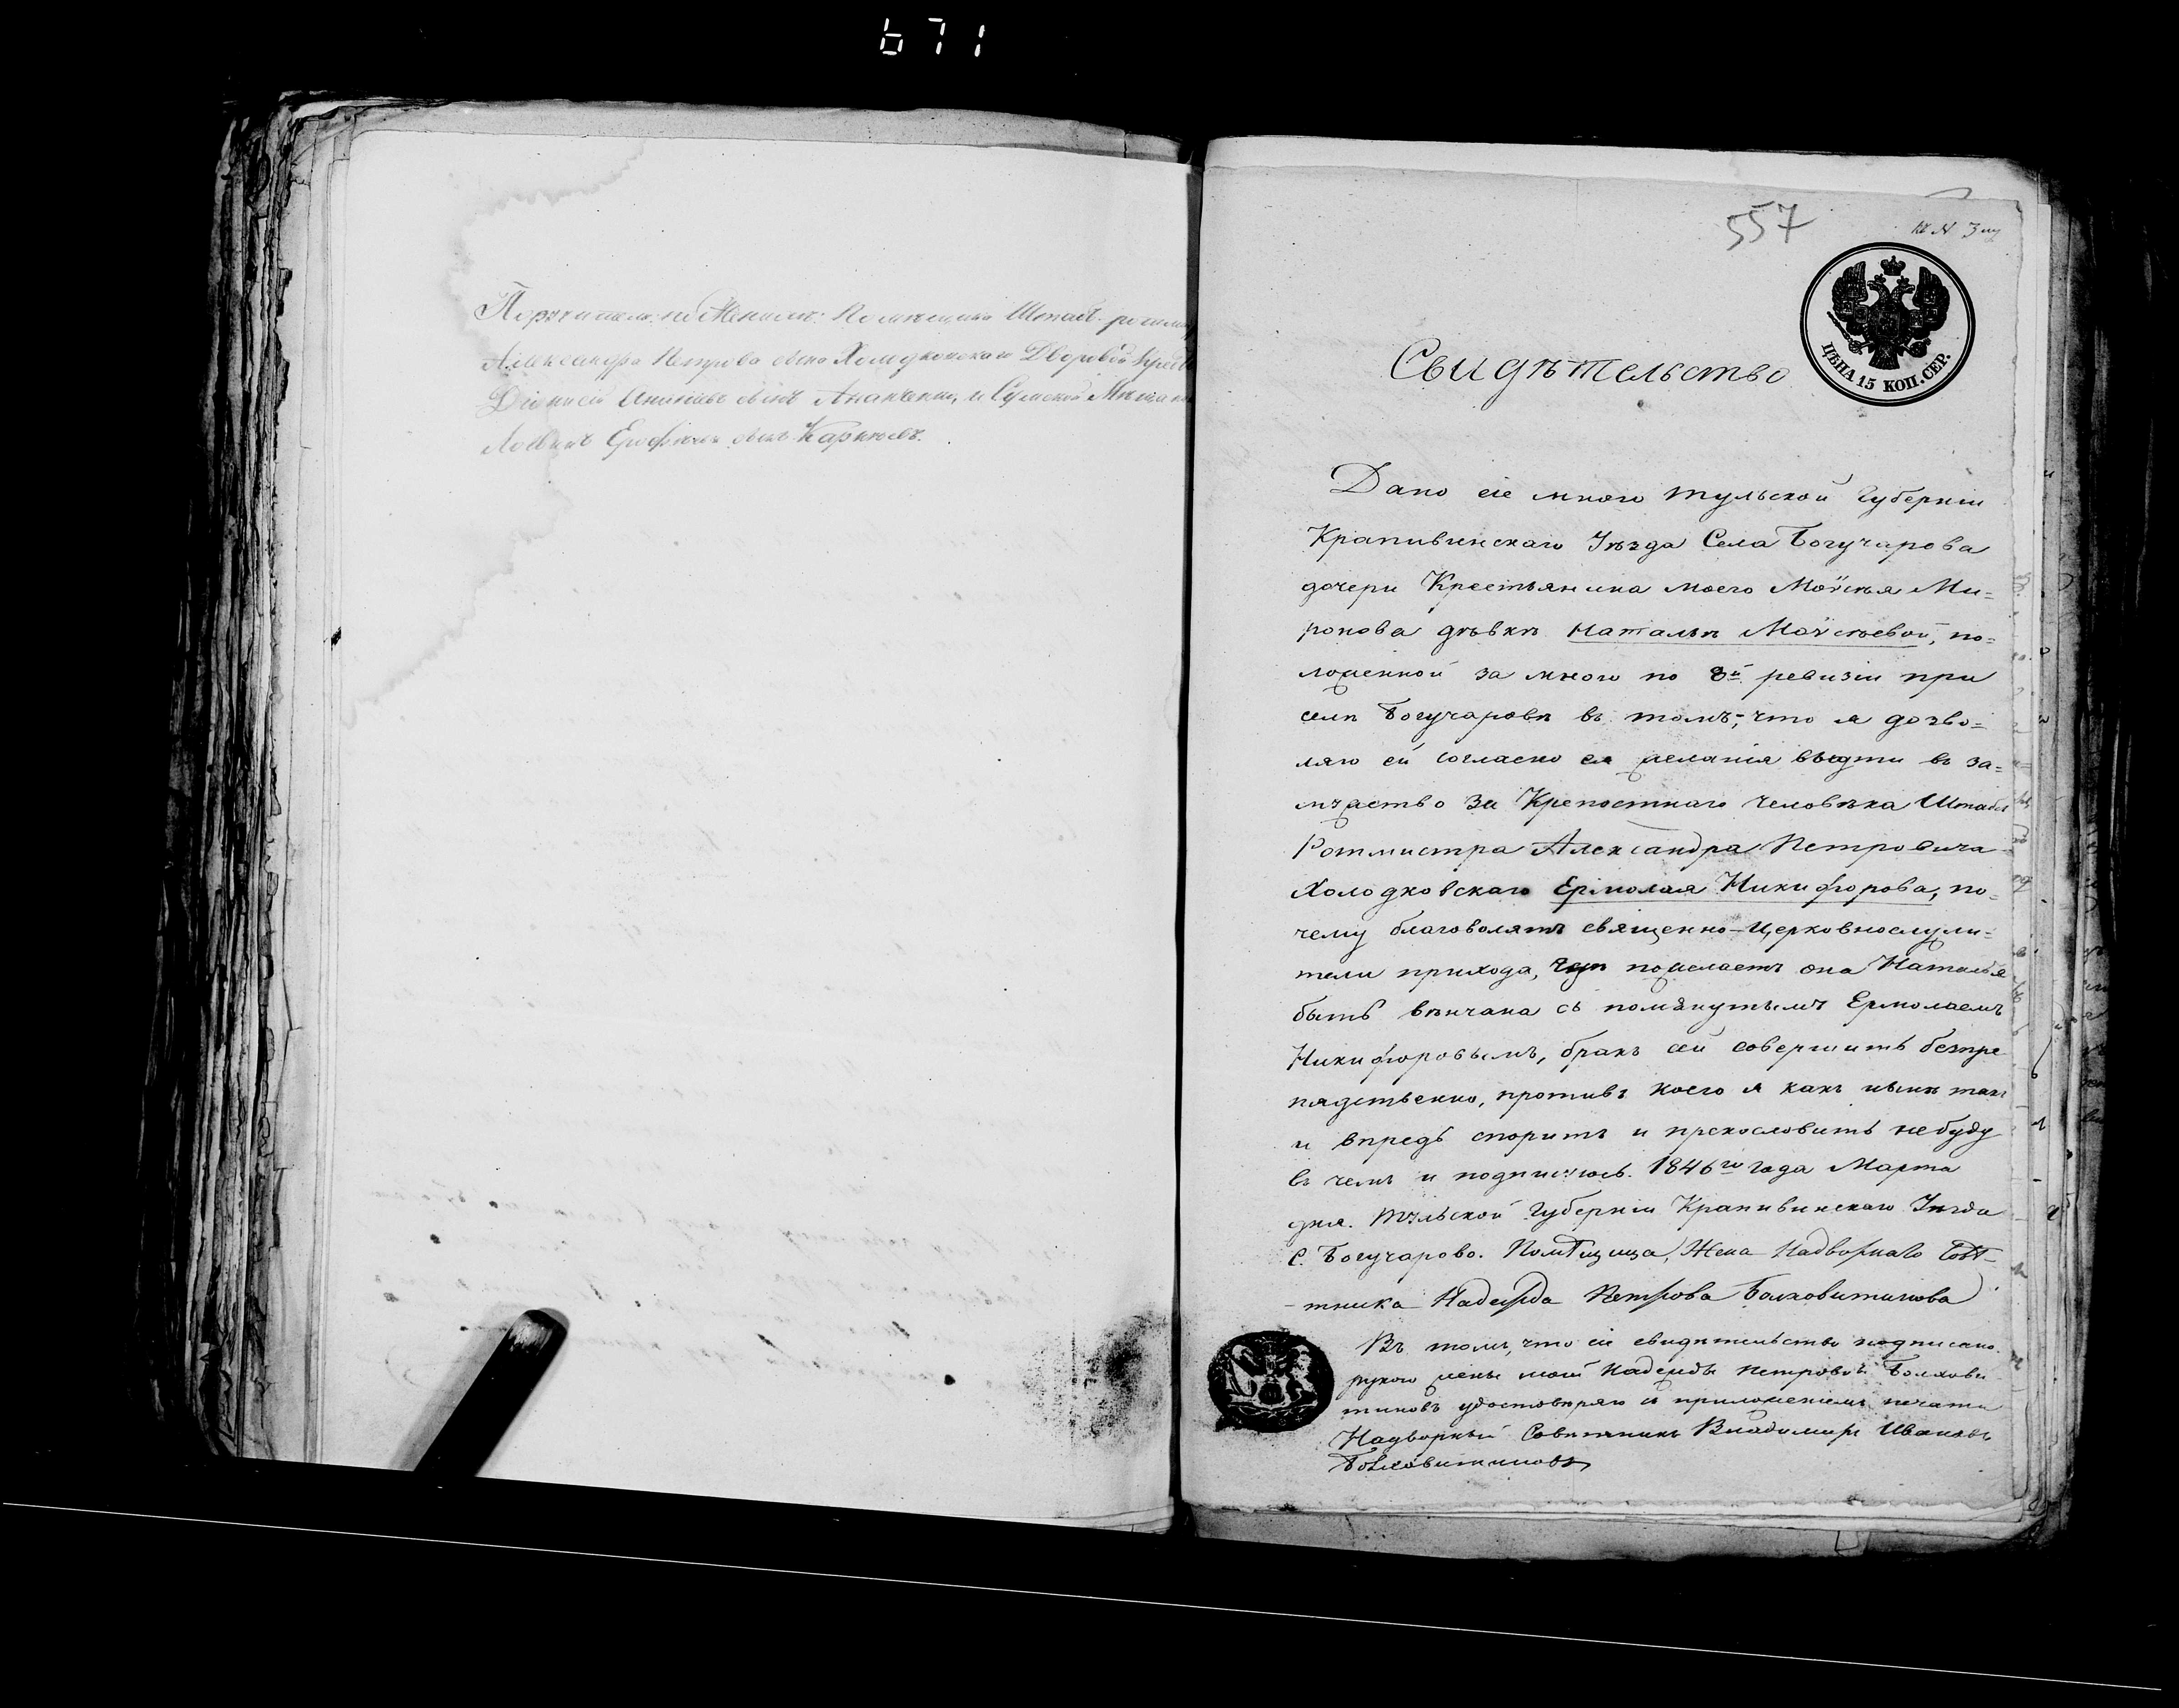 671
Поручители: по Женихѣ: Помѣщика Штабъ-ротмис
Александра Петрова сына Холодковскаго Дворовой
сынъ и Сумской Мѣщан
сынъ Карпѣевъ.
557
Свидѣтельство
ЦѢНА 15 КОП. СЕР.
Дано сіе мною Тульской Губерніи
Крапивинскаго Уѣзда Села Богучарова
дочери Крестьянина моего Мойсѣя Ми=
ронова дѣвкѣ Натальѣ Мойсѣевой, по=
ложенной за мною по 8й ревизіи при
селѣ Богучаровѣ въ томъ, что я дозво=
ляю ей согласно ея желанія выдти въ за=
мужство за Крепостнаго человѣка Штабсъ
Ротмистра Александра Петровича
Холодковскаго Ермолая Никифорова, по=
чему благоволятъ священно-церковнослужи=
тели прихода, гдѣ пожелаетъ она Наталья
быть вѣнчана съ помянутымъ Ермолаемъ
Никифоровымъ, бракъ сей совершить безпре
пядственно, противъ коего я какъ нынѣ такъ
и впредь спорить и прекословить не буду
въ чемъ и подписуюсь. 1846го года Марта
дня. Тульской Губерніи Крапивинскаго Уѣзда
С. Богучарово. Помѣщица, Жена Надворнаго Совѣ-
-тника Надежда Петрова Болховитинова
Въ томъ, что сіе свидѣтельство подписано
рукою жены моей Надежды Петровой Болхови
тиновой удостовѣряю съ приложеніемъ печати
Надворный Совѣтникъ Владимиръ Ивановъ
Болховитиновъ